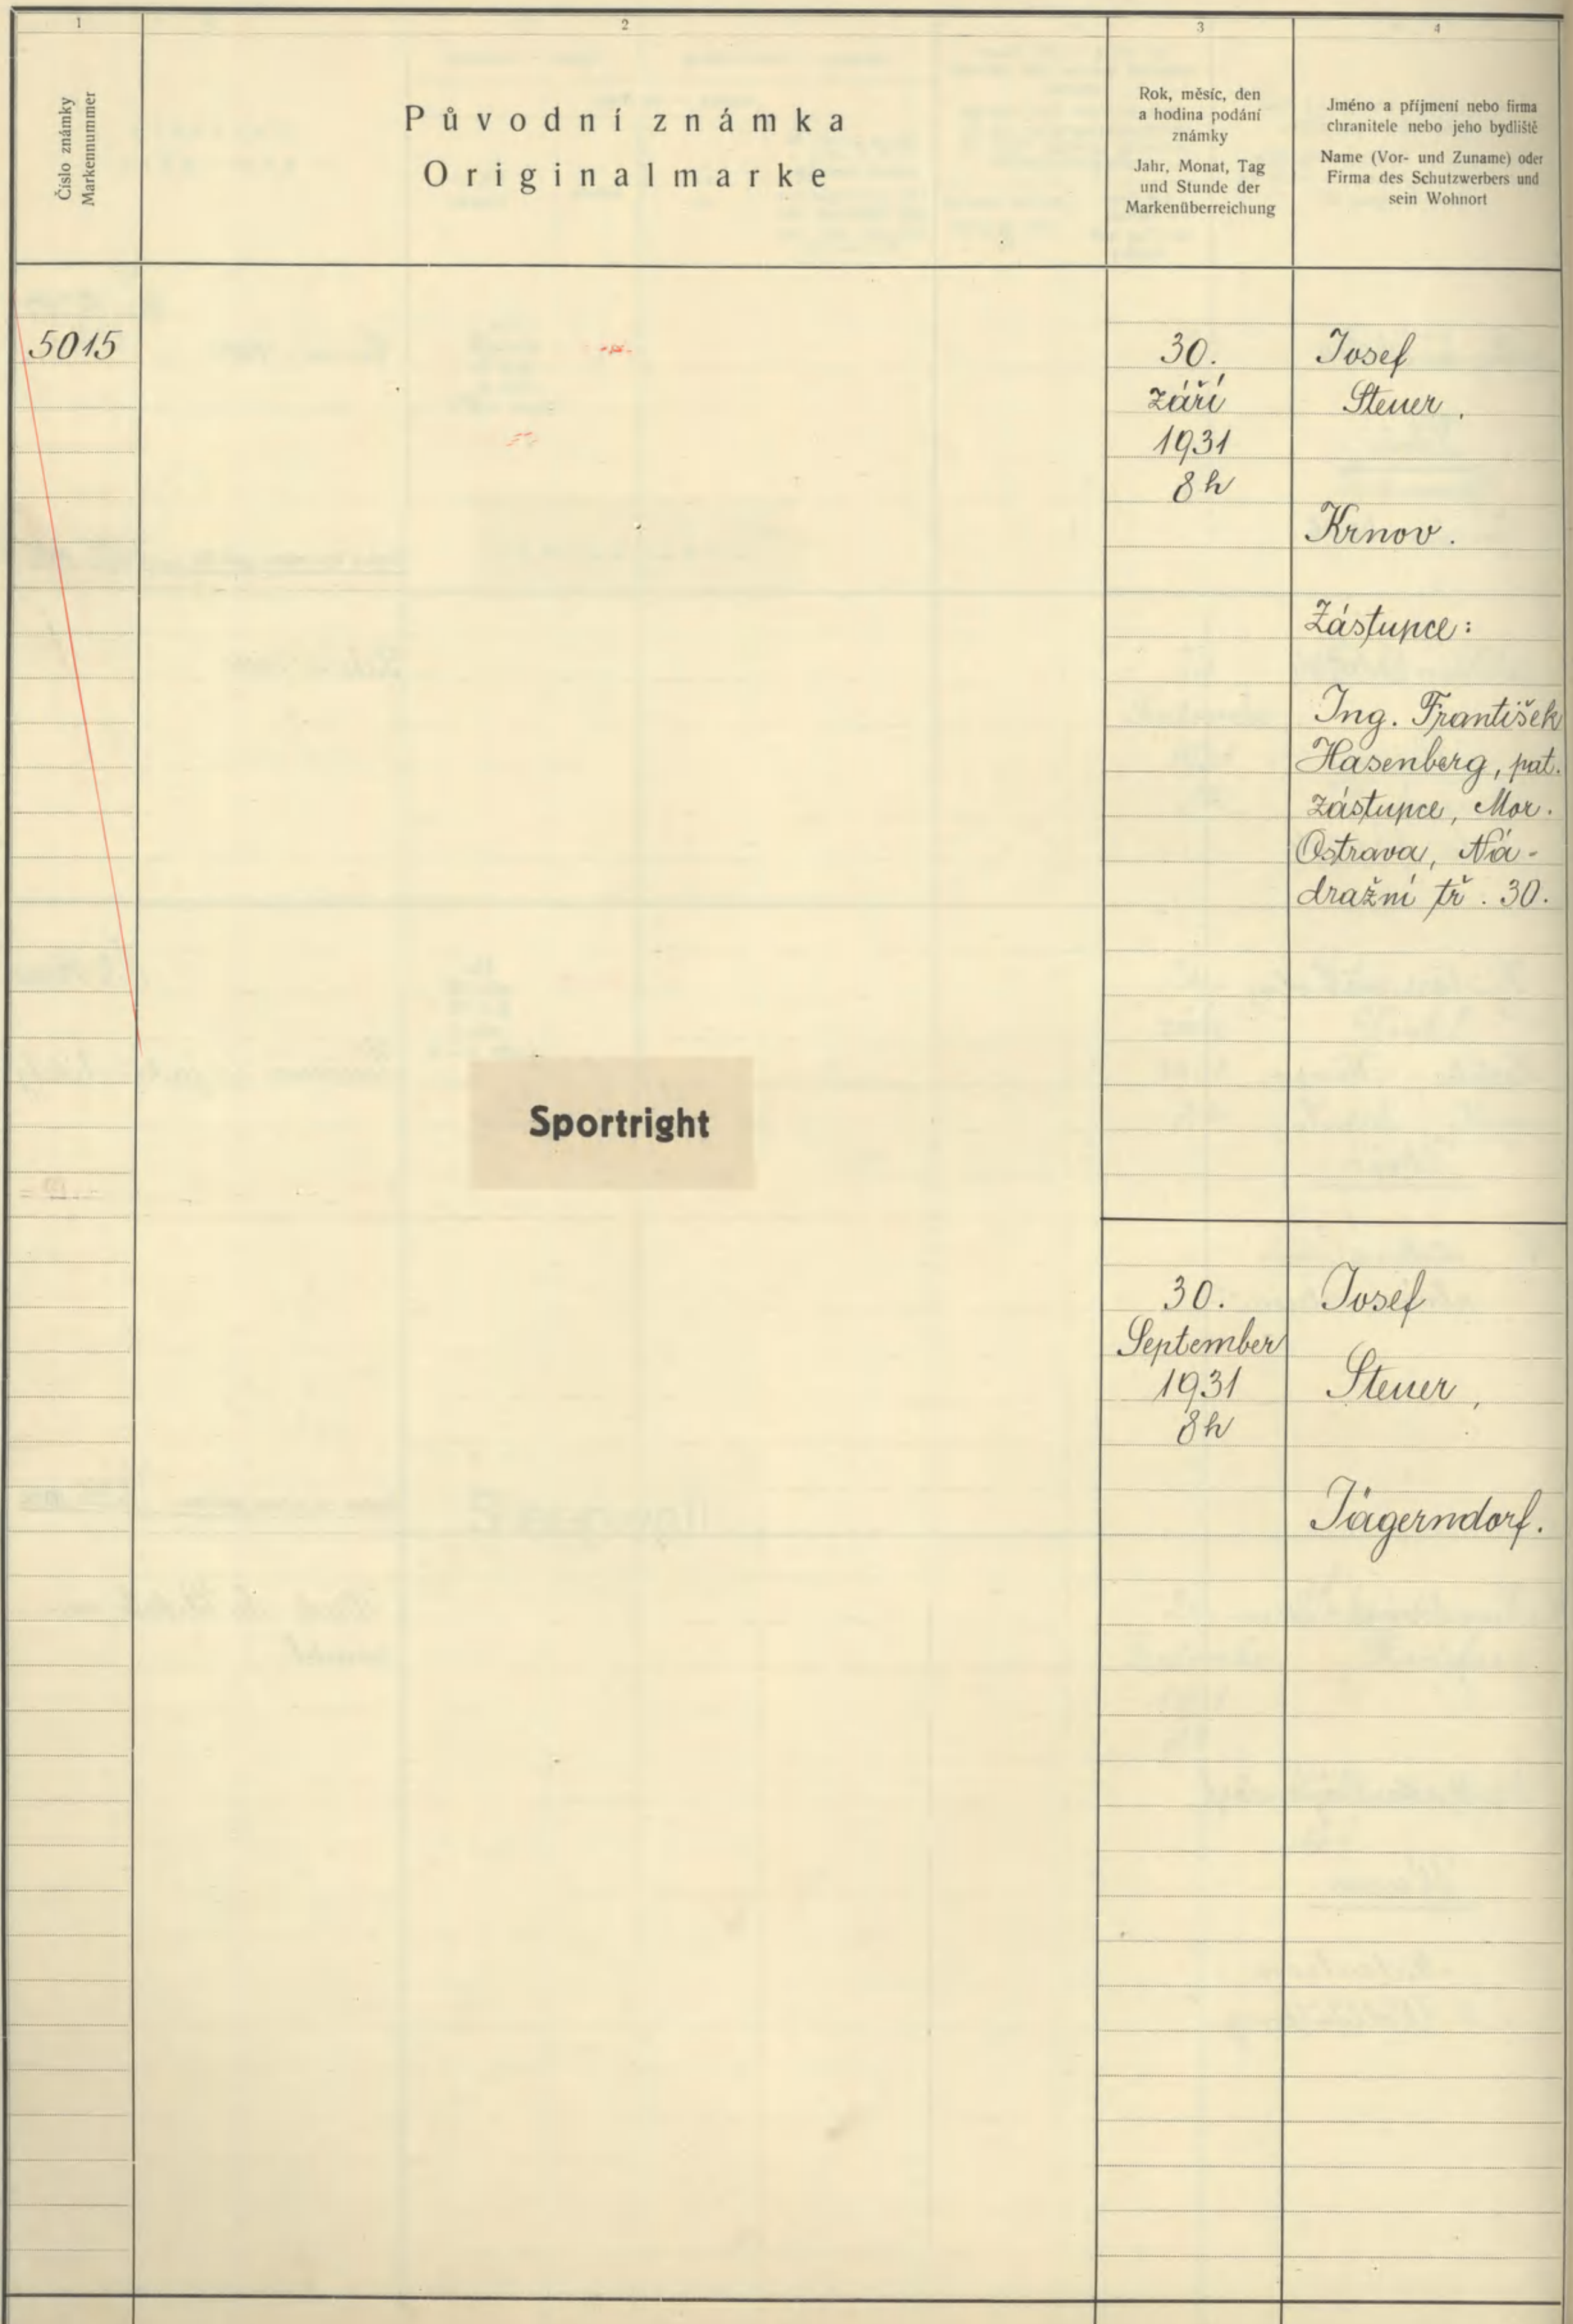 1
2
3
4
Číslo známky
Markennummer
Původní známka
Originalmarke
Rok, měsíc, den
a hodina podání
známky
Jahr, Monat, Tag
und Stunde der
Markenüberreichung
Jméno a příjmení nebo firma
chranitele nebo jeho bydliště
Name (Vor- und Zuname) oder
Firma des Schutzwerbers und
sein Wohnort
5015
30.
září
1931
8 h
Josef
Steuer,
Krnov.
Zástupce:
Ing. František
Hasenberg, pat.
zástupce, Mor.
Ostrava, Ná-
dražní tř. 30.
Sportright
30.
September
1931
8 h
Josef
Steuer,
Jägerndorf.